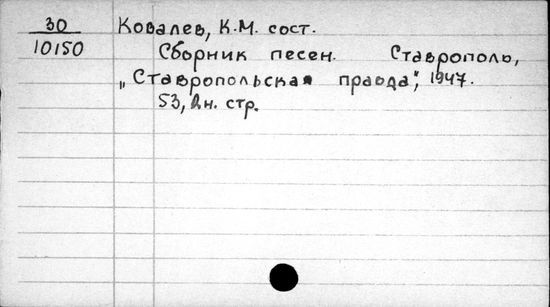 30 Ковалев, К.М. сост.
10150 Сборник песен. Ставрополь,
„Ставропольская правда", 1947.
53, 2н. стр.